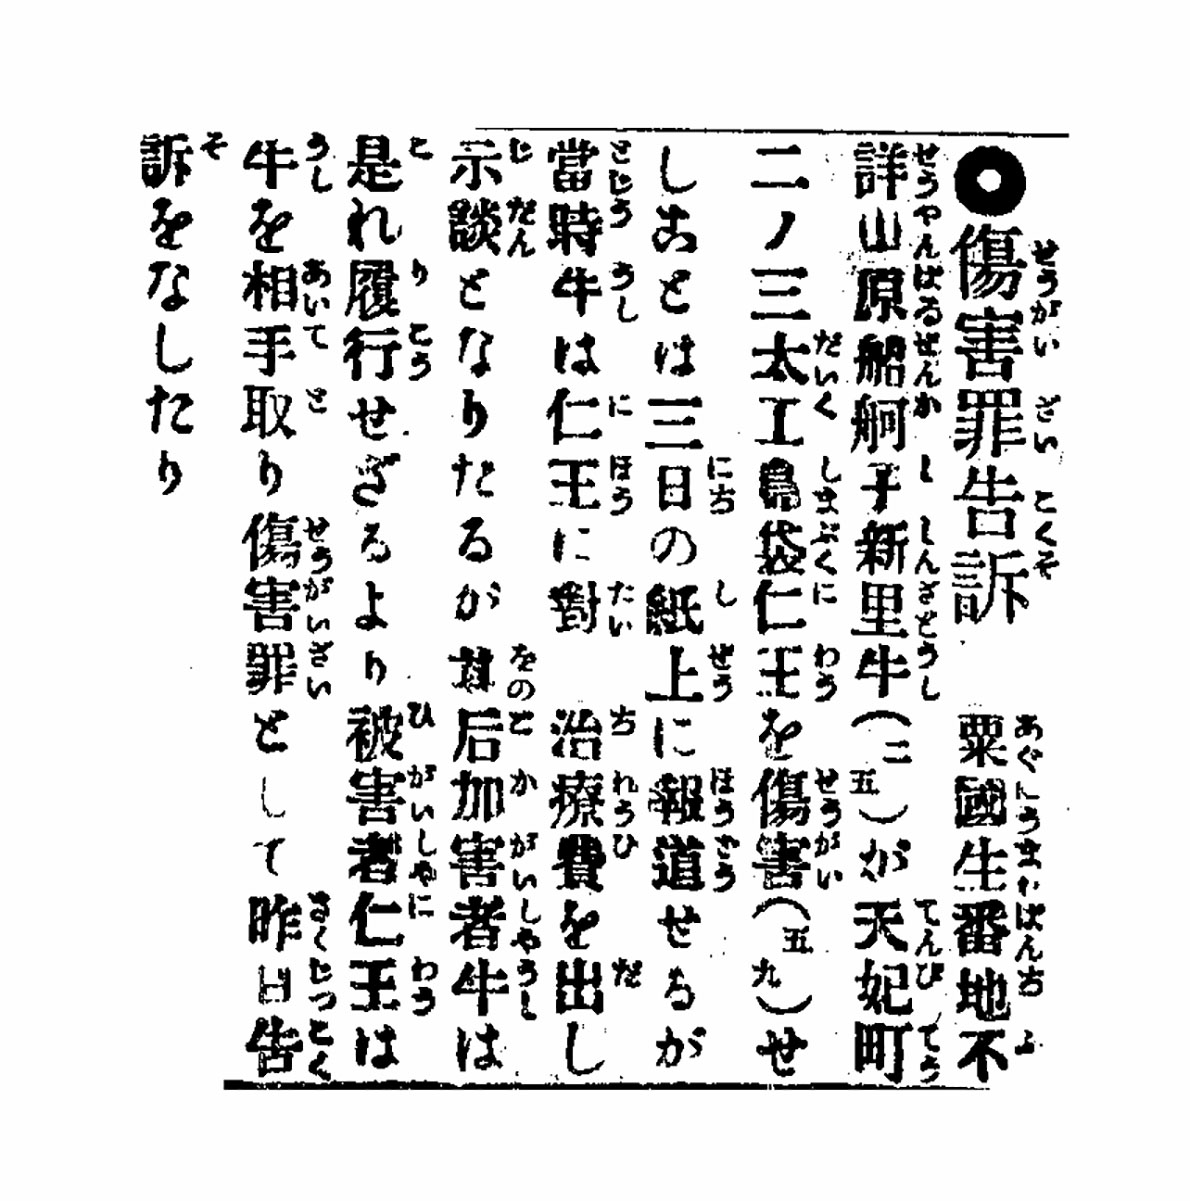 ◉傷害罪告訴　粟國生番地不
詳山原船舸子新里牛(二五)が天妃町
二ノ三太工島袋仁王を傷害(五九)せ
しことは三日の紙上に報道せるが
當時牛は仁王に對　治療費を出し
示談となりたるが其后加害者牛は
是れ履行せざるより被害者仁王は
牛を相手取り傷害罪として昨日告
訴をなしたり